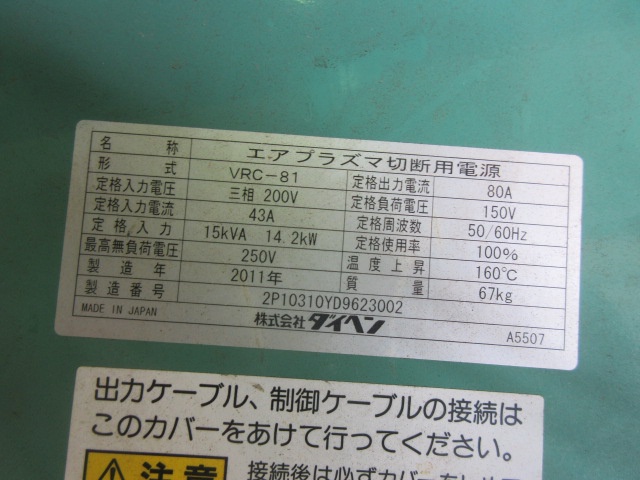 名称 エアプラズマ切断用電源
形式 VRC-81 定格出力電流 80A
定格入力電圧 三相 200V 定格負荷電圧 150V
定格入力電流 43A 定格周波数 50/60Hz
定格入力 15kVA 14.2kW 定格使用率 100%
最高無負荷電圧 250V 温度上昇 160℃
製造年 2011年 質量 67kg
製造番号 2P10310YD9623002
MADE IN JAPAN 株式会社 ダイヘン A5507
出力ケーブル、制御ケーブルの接続は
このカバーをあけて行ってください。
注意 接続後は必ずカバーをしめて